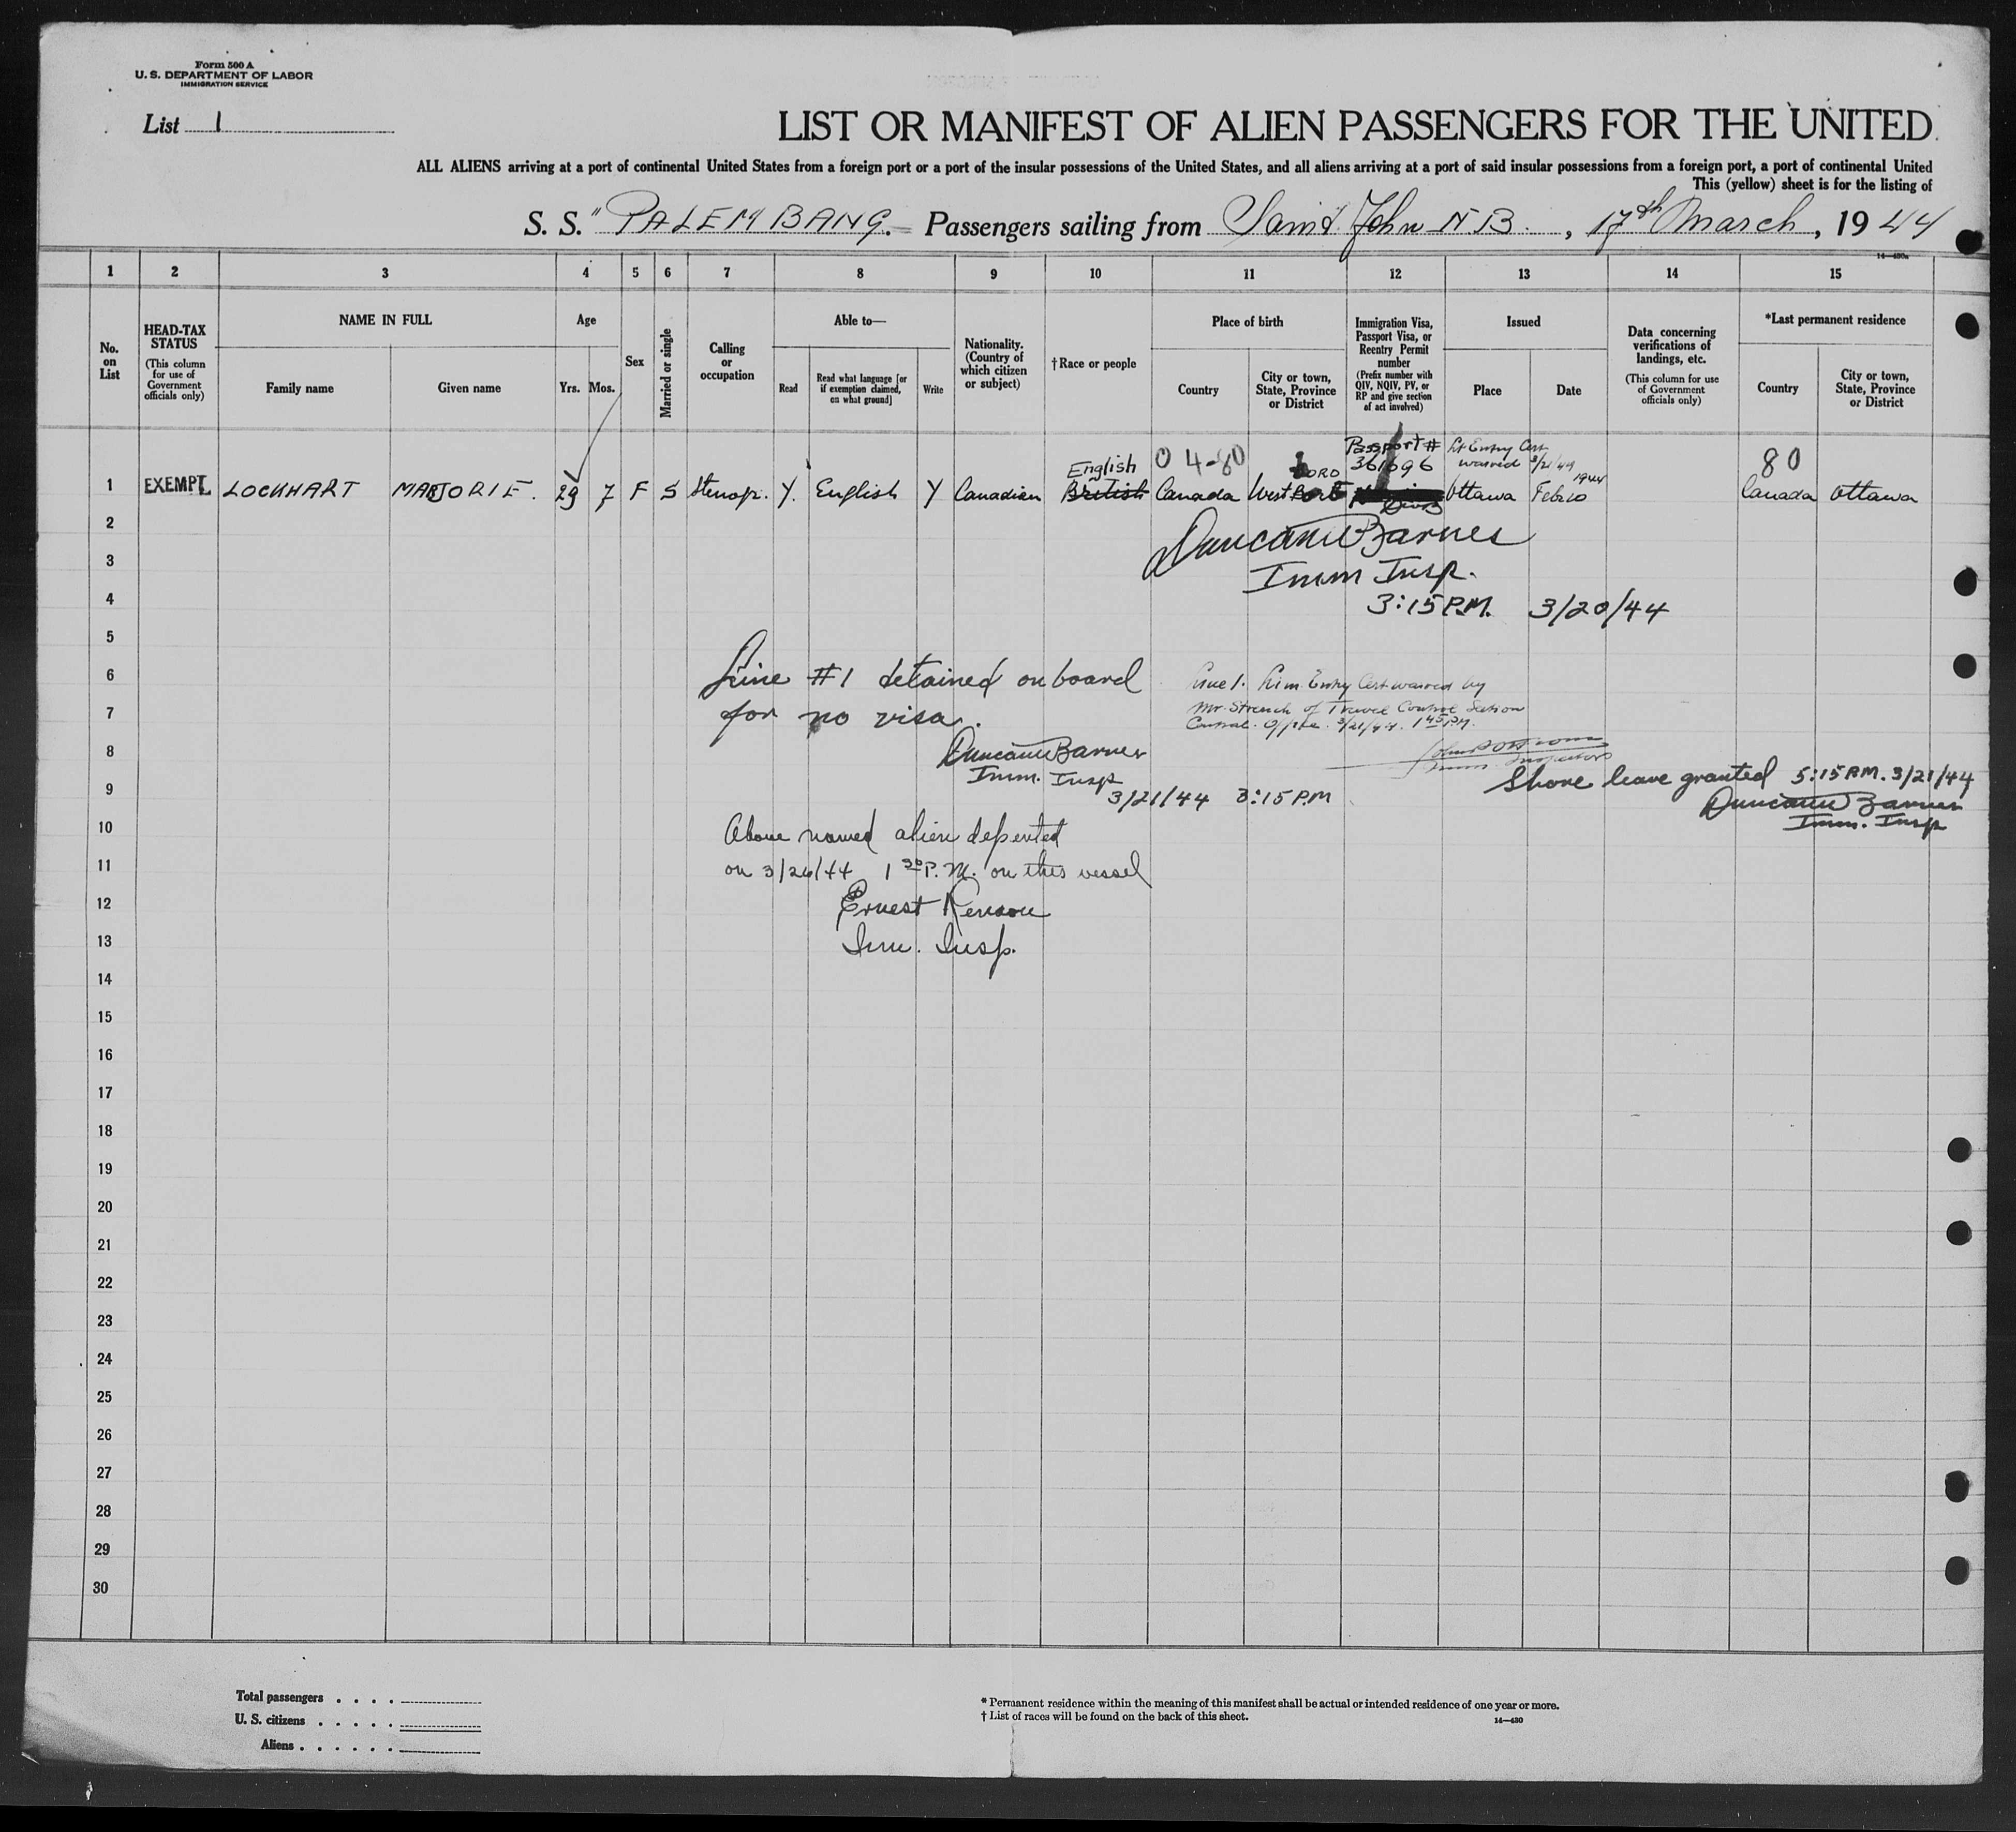 Form 500 A
U. S. DEPARTMENT OF LABOR
IMMIGRATION SERVICE
List 1
LIST OR MANIFEST OF ALIEN PASSENGERS FOR THE UNITED
ALL ALIENS arriving at a port of continental United States from a foreign port or a port of the insular possessions of the United States, and all aliens arriving at a port of said insular possessions from a foreign port, a port of continental United
This (yellow) sheet is for the listing of
S. S. "PALEMBANG. Passengers sailing from Saint John N B., 17th March, 1944
14—430a
1 2 3 4 5 6 7 8 9 10 11 12 13 14 15
No. on List
HEAD-TAX STATUS
(This column for use of Government officials only)
NAME IN FULL
Family name
Given name
Age
Yrs. Mos.
Sex
Married or single
Calling or occupation
Able to—
Read
Read what language [or if exemption claimed, on what ground]
Write
Nationality. (Country of which citizen or subject)
†Race or people
Place of birth
Country
City or town, State, Province or District
Immigration Visa, Passport Visa, or Reentry Permit number
(Prefix number with QIV, NQIV, PV, or RP and give section of act involved)
Issued
Place
Date
Data concerning verifications of landings, etc.
(This column for use of Government officials only)
*Last permanent residence
Country
City or town, State, Province or District
English 0 4-80 Passport # 361696 Lt Entry Cert waived 3/21/44 80
1 EXEMPT LOCKHART MARJORIE. 29 7 F S Stenogr. Y. English Y Canadian British Canada West Ottawa Feb 10 1944 Canada Ottawa
2
Duncan Barnes
3
Imm Insp.
4
3:15 P.M. 3/20/44
5
6
Line #1 detained on board
Line 1. Lim. Entry Cert waived by
7
for no visa.
Mr. of Travel Control Section
Central Office 3/21/44. 1 45 PM.
8
Duncan Barnes
Imm. Inspector
Imm. Insp
Shore leave granted 5:15 P.M. 3/21/44
9
3/21/44 3:15 P.M
Duncan Barnes
Imm. Insp
10
Above named alien departed
11
on 3/26/44 1 30 P.M. on this vessel
12
Ernest
13
Imm. Insp.
14
15
16
17
18
19
20
21
22
23
24
25
26
27
28
29
30
Total passengers
U. S. citizens
Aliens
* Permanent residence within the meaning of this manifest shall be actual or intended residence of one year or more.
† List of races will be found on the back of this sheet.
14—430